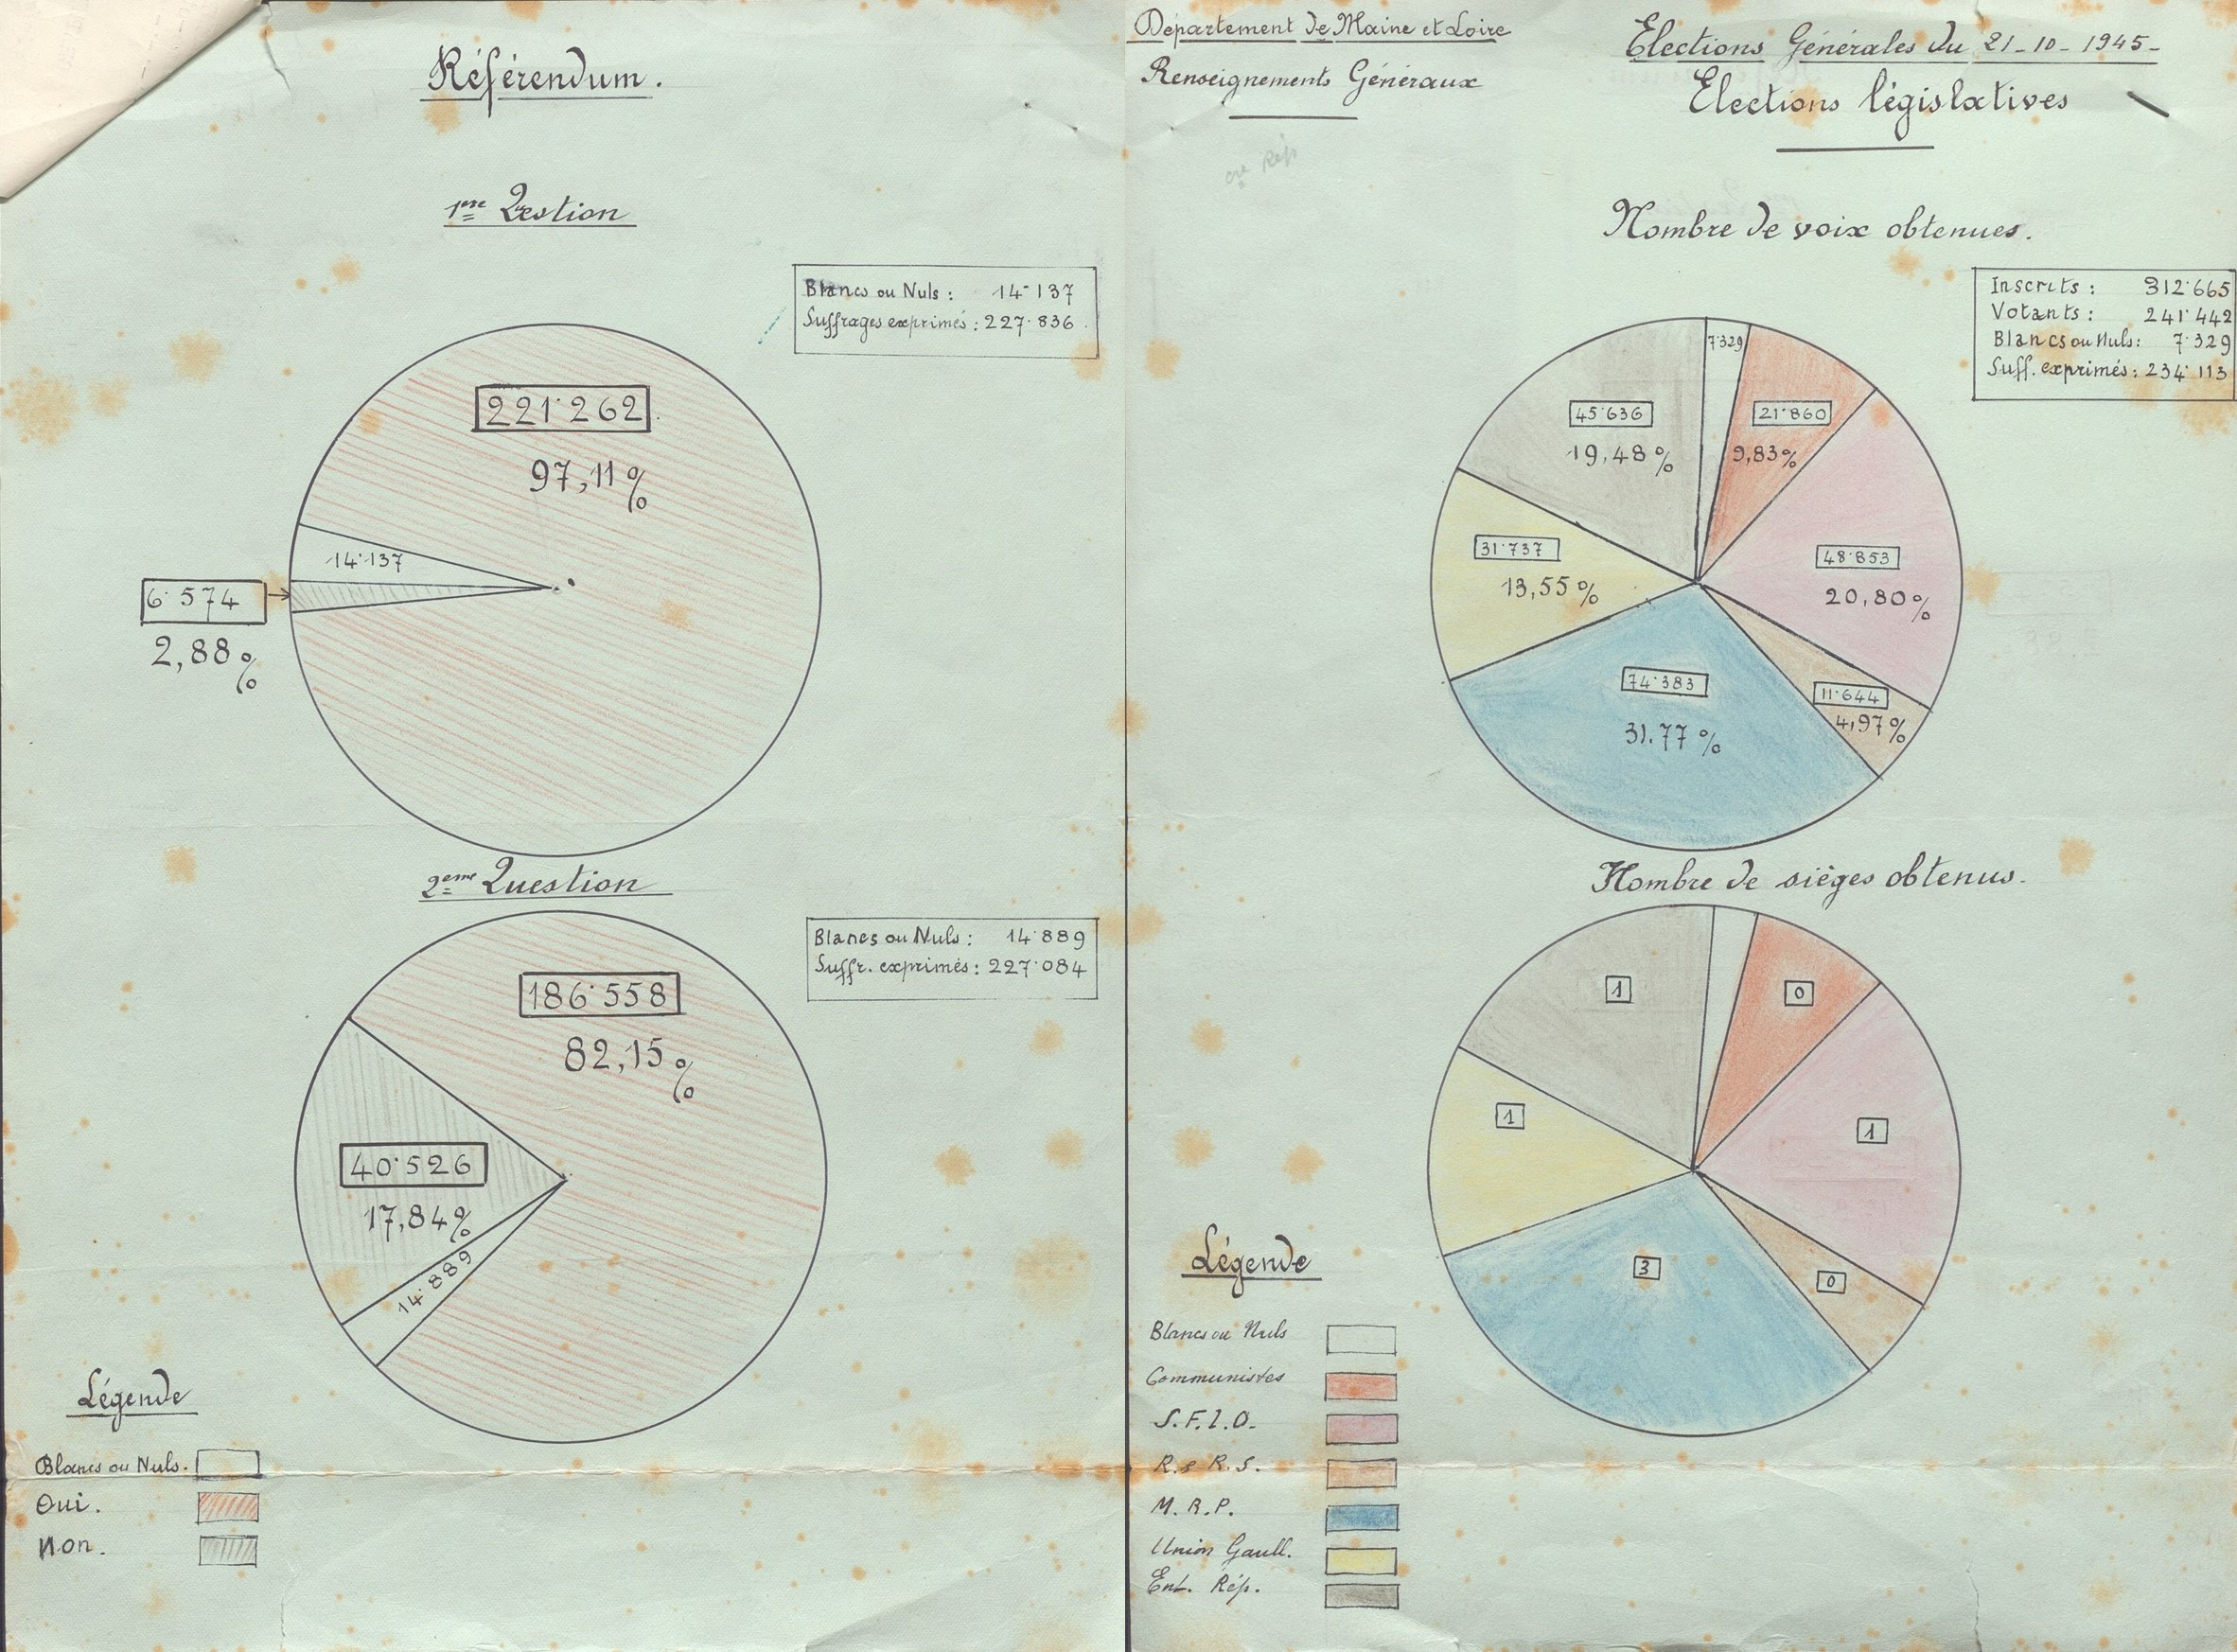 Référendum.
1ère Question
Blancs ou Nuls : 14·137
Suffrages exprimés : 227·836
221·262
97,11%
14·137
6·574
2,88%
2ème Question
Blancs ou Nuls : 14·889
Suffr. exprimés : 227·084
186·558
82,15%
40·526
17,84%
14·889
Légende
Blancs ou Nuls.
Oui.
Non.
Département de Maine et Loire
Renseignements Généraux
Elections Générales du 21-10-1945-
Elections législatives
Nombre de voix obtenues.
Inscrits : 312·665
Votants : 241·442
Blancs ou Nuls : 7·329
Suff. exprimés : 234·113
7·329
21·860
9,83%
45·636
19,48%
48·853
20,80%
31·737
13,55%
74·383
31.77%
11·644
4,97%
Nombre de sièges obtenus.
1
0
1
1
3
0
Légende
Blancs ou Nuls
Communistes
S.F.I.O.
R. & R.S.
M.R.P.
Union Gaull.
Ent. Rép.